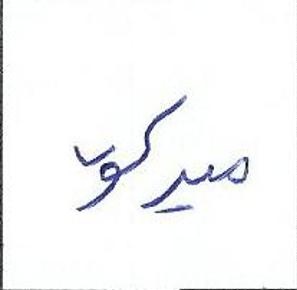 میرکوه